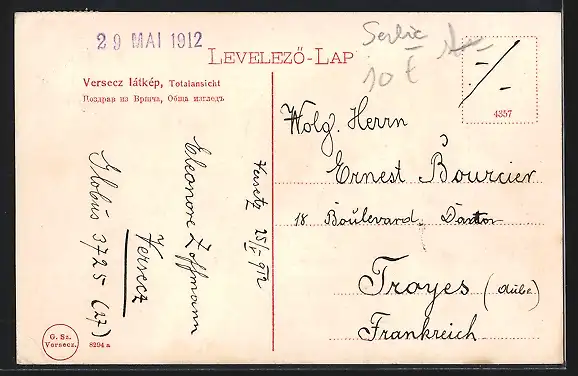 29 MAI 1912
LEVELEZŐ-LAP
Serbie
10 €
Versecz látkép, Totalansicht
Поздрав из Вршца, Обща изгледъ
4357
Wolg. Herrn
Ernest Bourcier
18 Boulevard Danton
Troyes (Aube)
Frankreich
Versetz 25/V 912
Eleonore Zoffmann
Versecz
Globus 3725 (27)
G. Sz.
Versecz.
8294 a